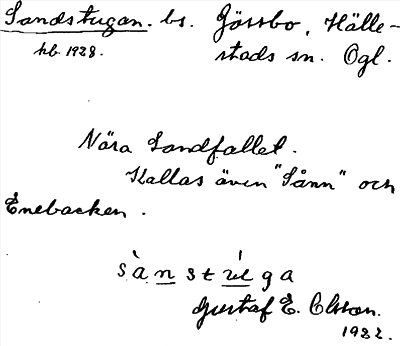 Sandstugan. bs. Jössbo, Hälle-
hb. 1928. stads sn. Ögl.
Nära Sandfallet.
Kallas även "Sånn" och
Enebacken.
sànstúga
Gustaf E. Olsson.
1932.